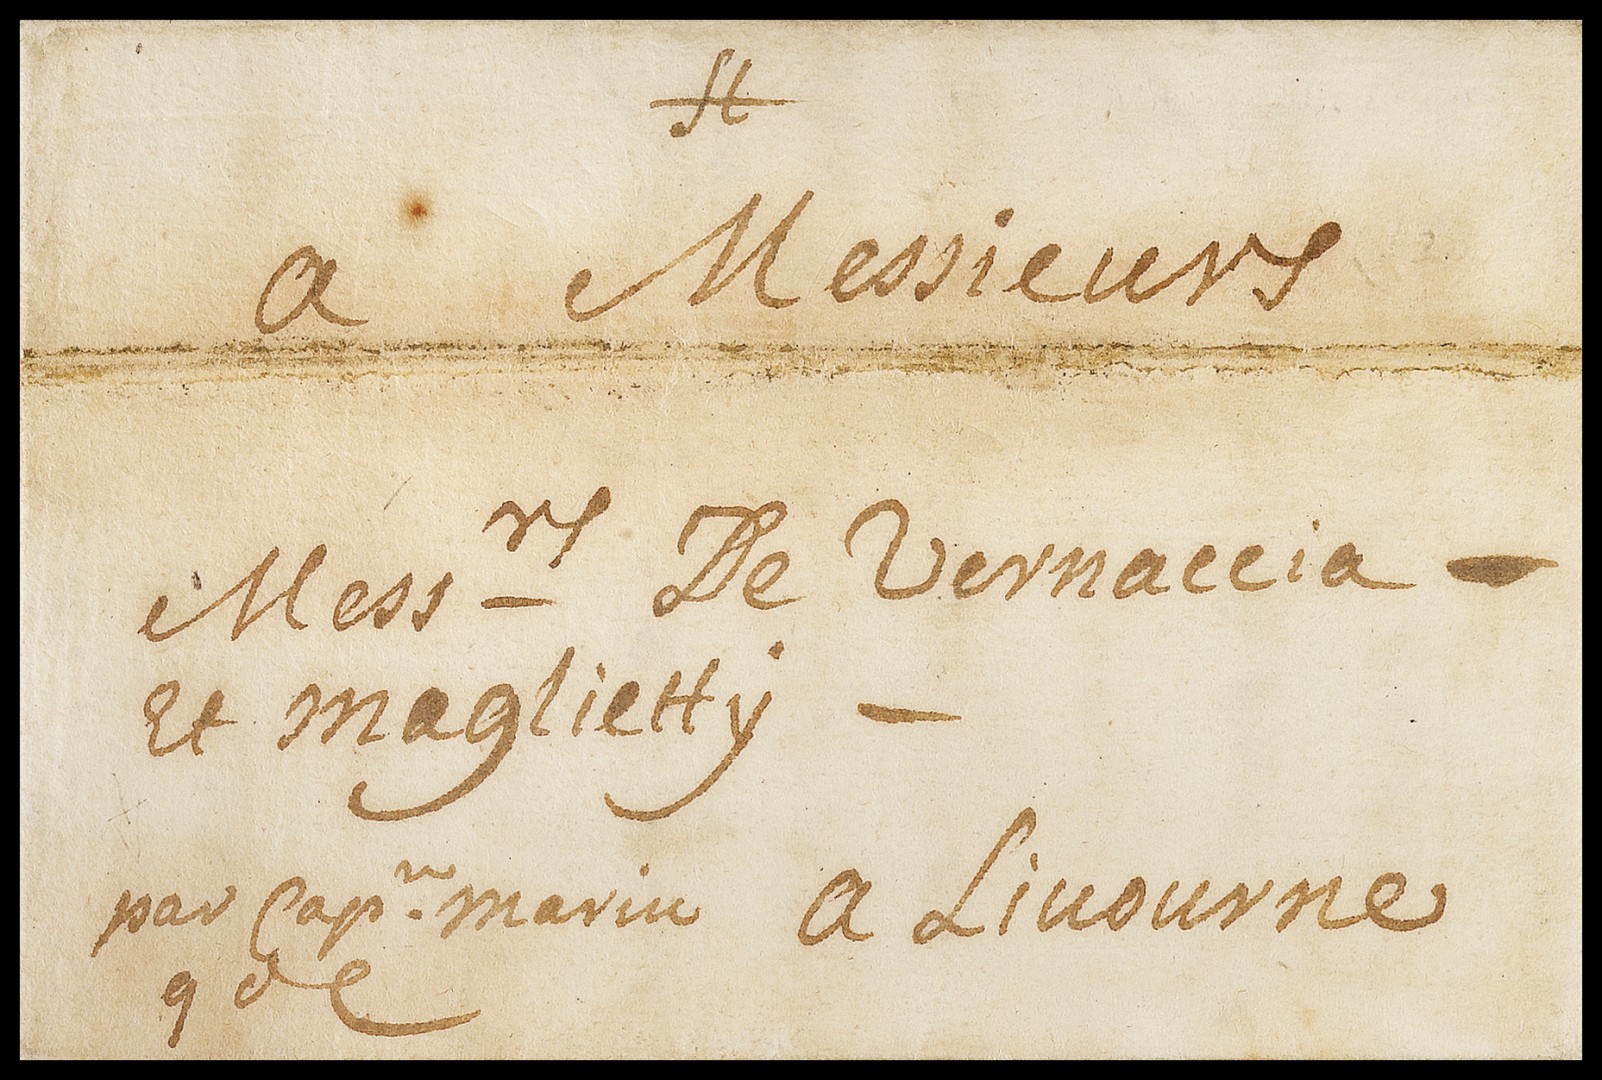 a Messieurs
Mess.rs De Vernaccia
Et maglietty
par Cap.n marin a Liuourne